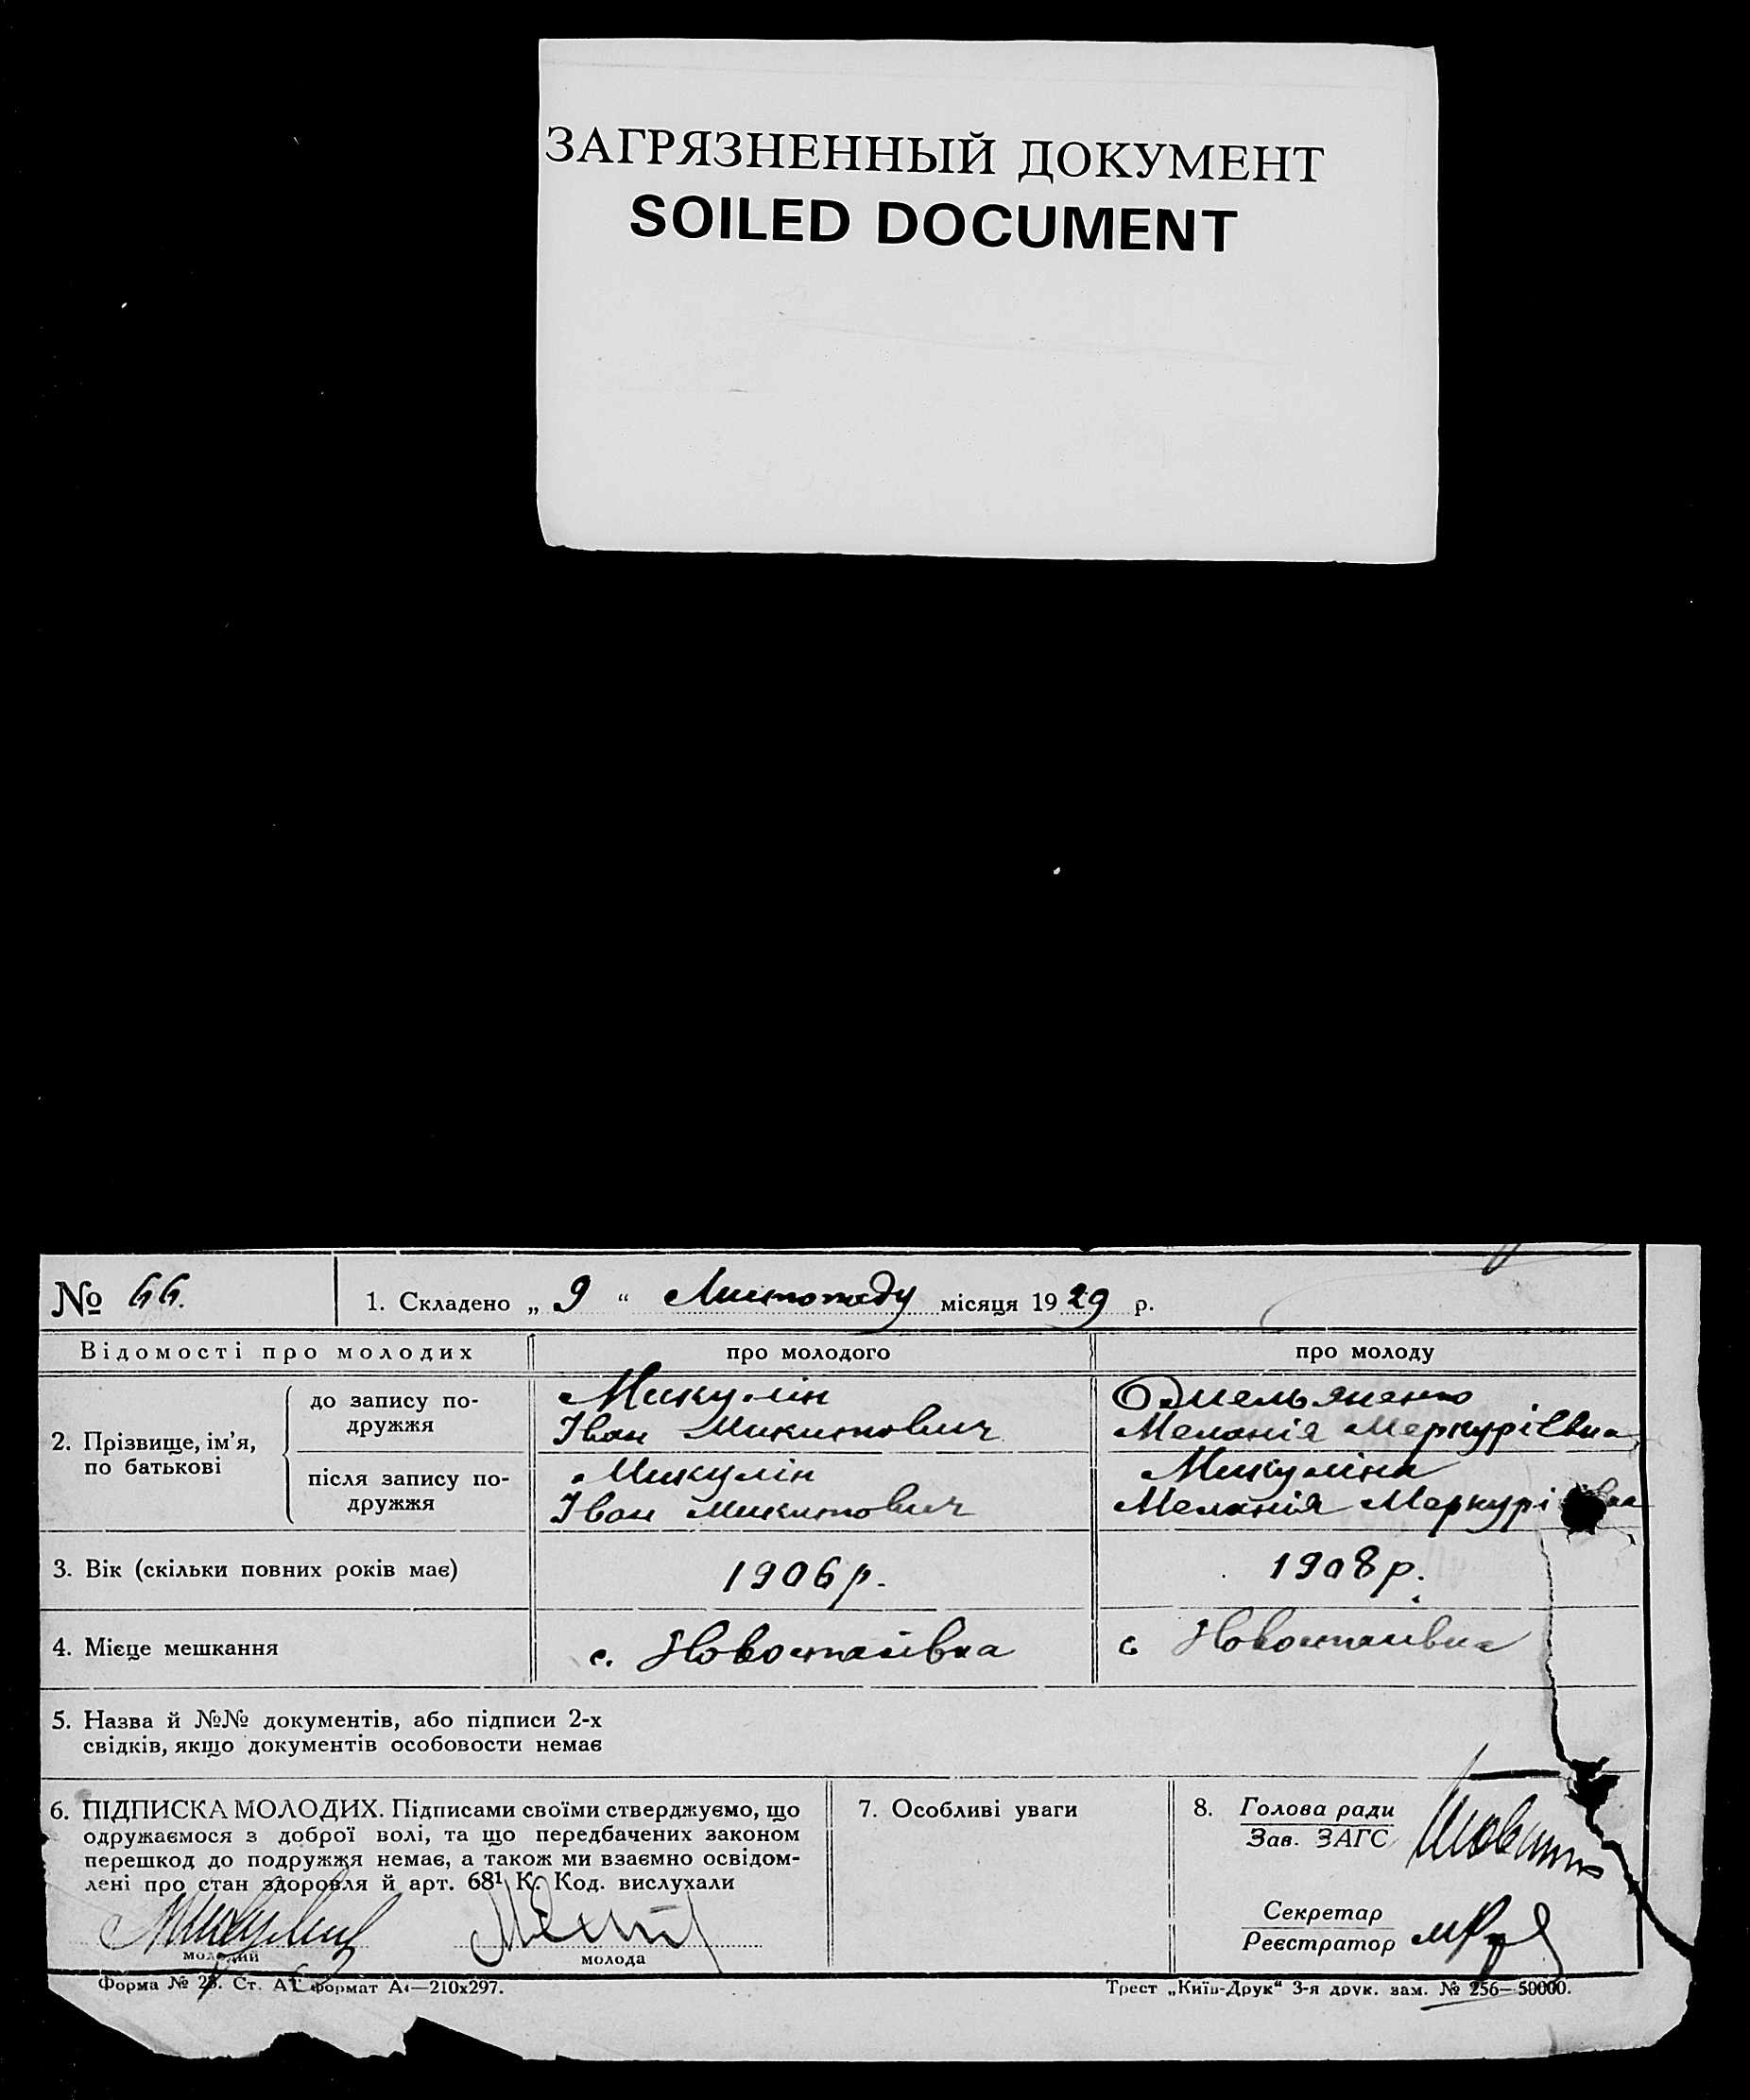 ЗАГРЯЗНЕННЫЙ ДОКУМЕНТ
SOILED DOCUMENT
№ 66.
1. Складено „ 9 “ Листопаду місяця 1929 р.
Відомості про молодих
про молодого
про молоду
2. Прізвище, ім’я,
по батькові
до запису по-
дружжя
Микулін
Іван Микитович
Омельяненко
Меланія Меркуріївна
після запису по-
дружжя
Микулін
Іван Микитович
Микуліна
Меланія Меркурі вна
3. Вік (скільки повних років має)
1906 р.
1908 р.
4. Місце мешкання
с. Новоставівка
с Новоставівка
5. Назва й №№ документів, або підписи 2-х
свідків, якщо документів особовости немає
6. ПІДПИСКА МОЛОДИХ. Підписами своїми стверджуємо, що
одружаємося з доброї волі, та що передбачених законом
перешкод до подружжя немає, а також ми взаємно освідом-
лені про стан здоровля й арт. 68¹ К. Код. вислухали
молодий
молода
7. Особливі уваги
8. Голова ради
Зав. ЗАГС
Секретар
Реєстратор
Форма № 28. Ст. А формат А4—210х297.
Трест „Київ-Друк“ 3-я друк. зам. № 256—50000.